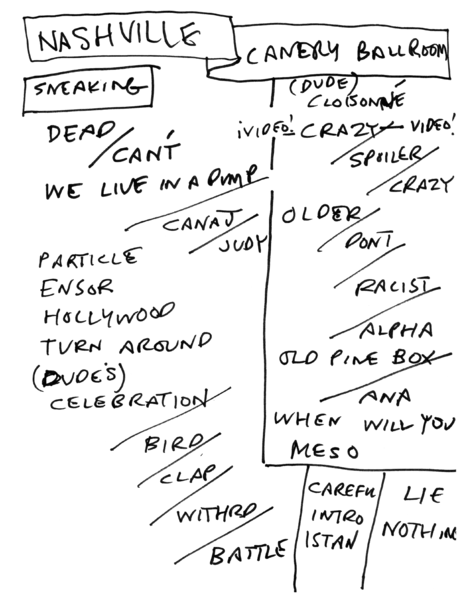 NASHVILLE
CANERY BALLROOM
SNEAKING
DEAD
CAN'T
WE LIVE IN A DUMP
CANAJ
JUDY
PARTICLE
ENSOR
HOLLYWOOD
TURN AROUND
(DUDE'S)
CELEBRATION
BIRD
CLAP
WITHRD
BATTLE
(DUDE)
CLOISONNÉ
¡VIDEO! CRAZY VIDEO!
SPOILER
CRAZY
OLDER
DONT
RACIST
ALPHA
OLD PINE BOX
ANA
WHEN WILL YOU
MESO
CAREFU
INTRO
ISTAN
LIE
NOTHIN